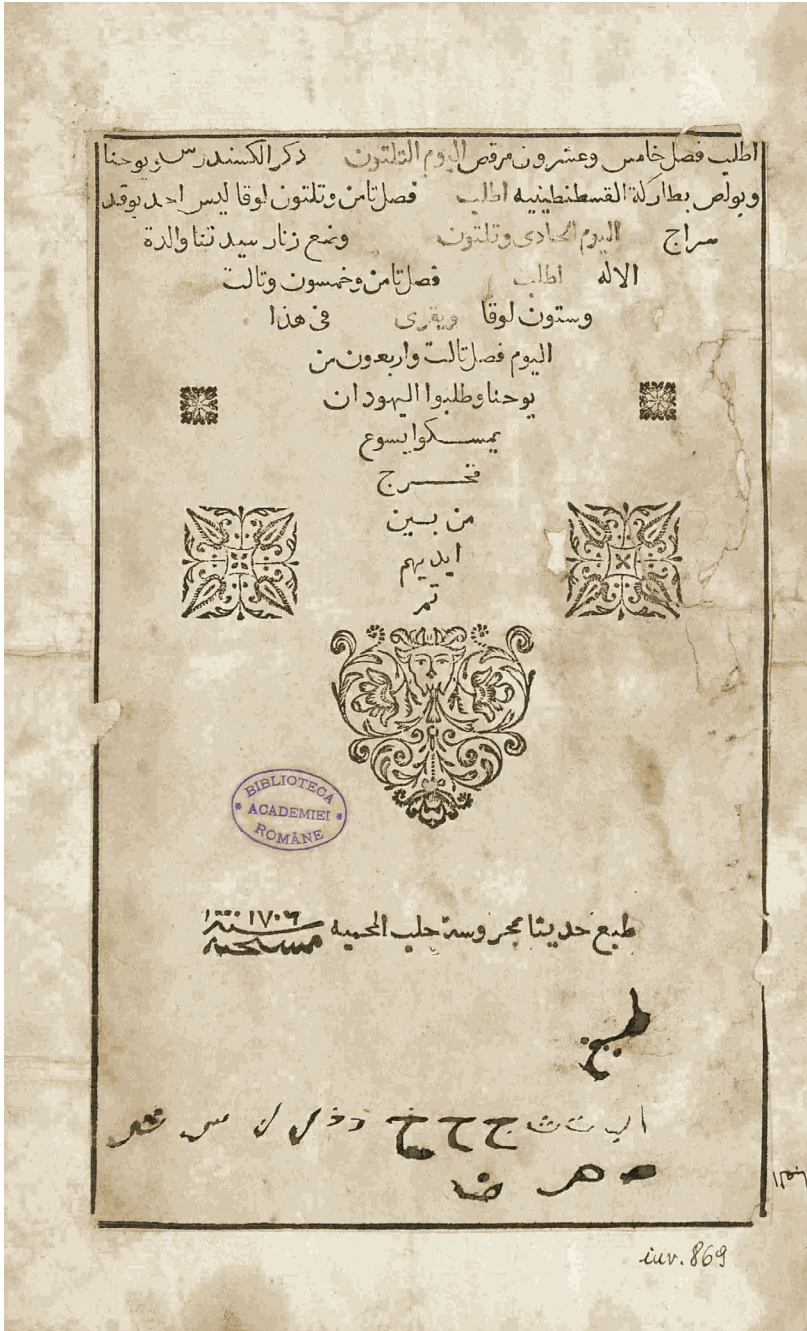 اطلب فصل خامس وعشرون مرقص اليوم التلتون ذكر الكسندرس ويوحنا
وبولص بطاركة القسطنطينيه اطلب فصل تامن وتلتون لوقا ليس احد يوقد
سراج اليوم الحادى وتلتون وضع زنار سيدتنا والدة
الاله اطلب فصل تامن وخمسون وتالت
وستون لوقا ويقرى فى هذا
اليوم فصل تالت واربعون من
يوحنا وطلبوا اليهود ان
يمسكوا يسوع
فخرج
من بين
ايديهم
تم
BIBLIOTECA
ACADEMIEI
ROMÂNE
طبع حديثا بمحروسة حلب المحميه سنة ١٧٠٦
مسيحية
ا ب ت ث ج ح خ د ذ
inv. 869